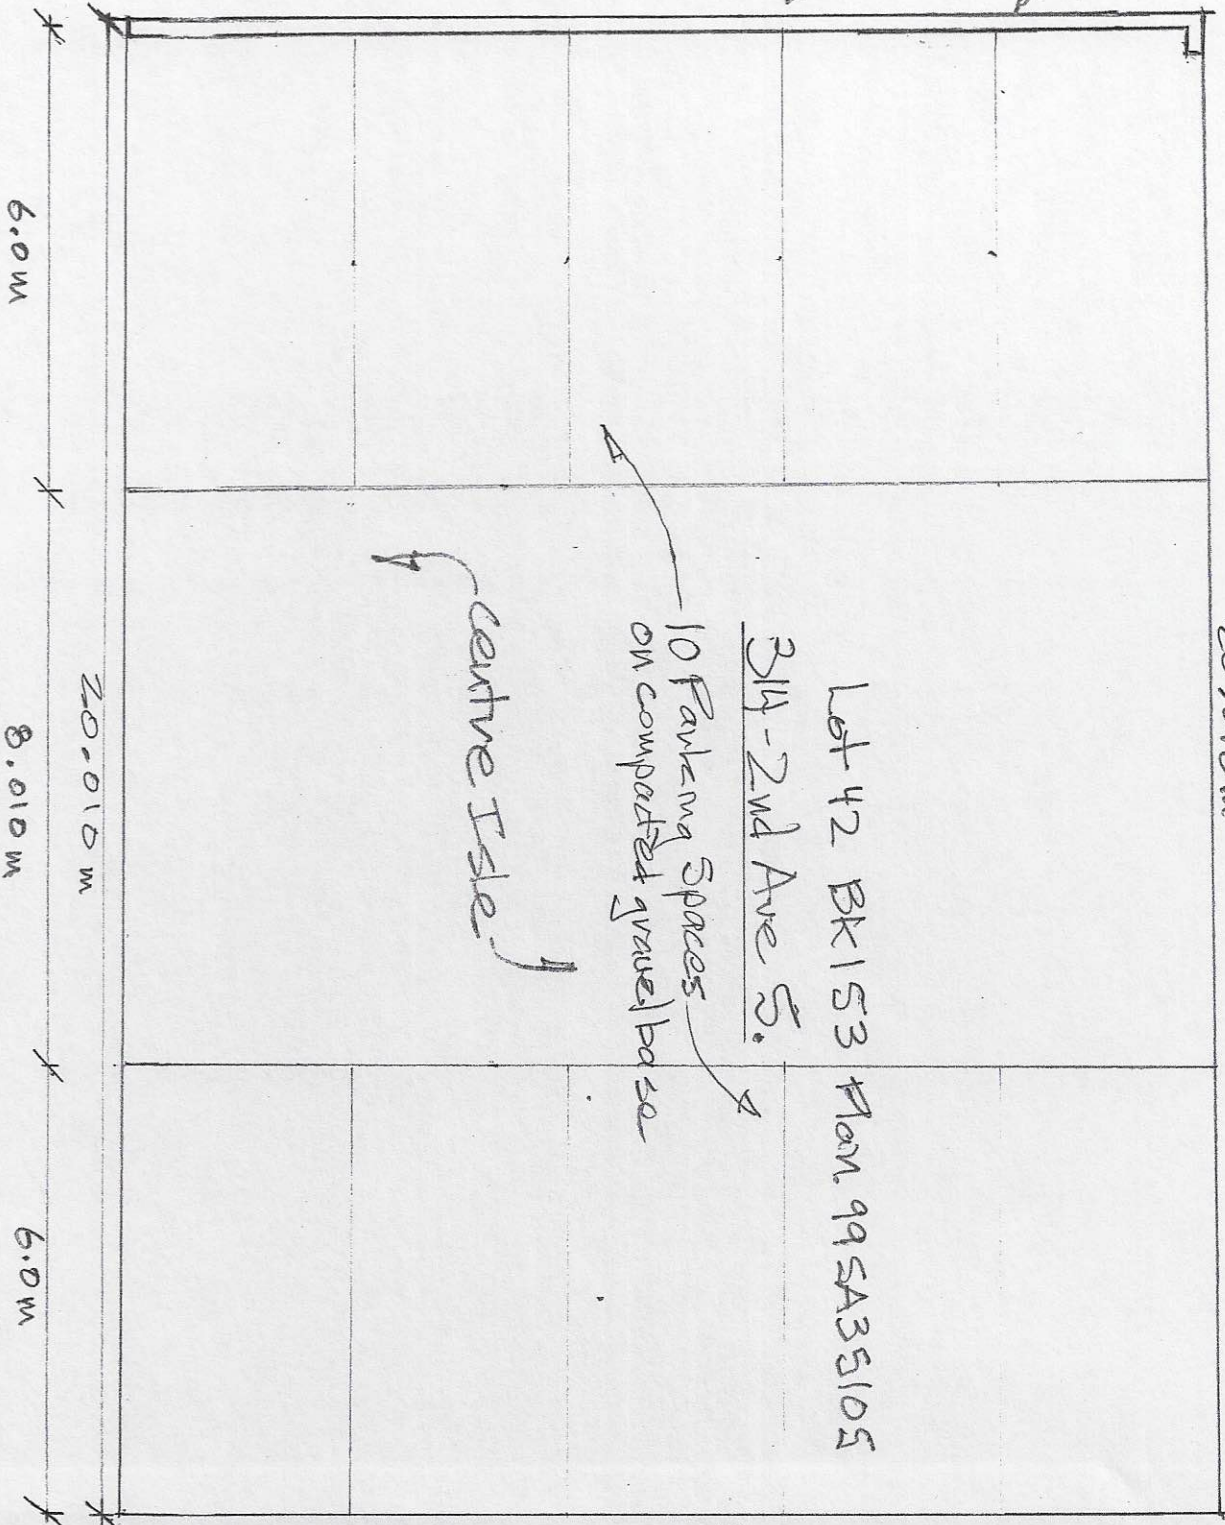 Lot 42 BK 153 Plan. 99SA35105
314-2nd Ave S.
10 Parking Spaces
on compacted gravel base
Centre Isle
20.010 m
6.0m
8.010m
6.0m